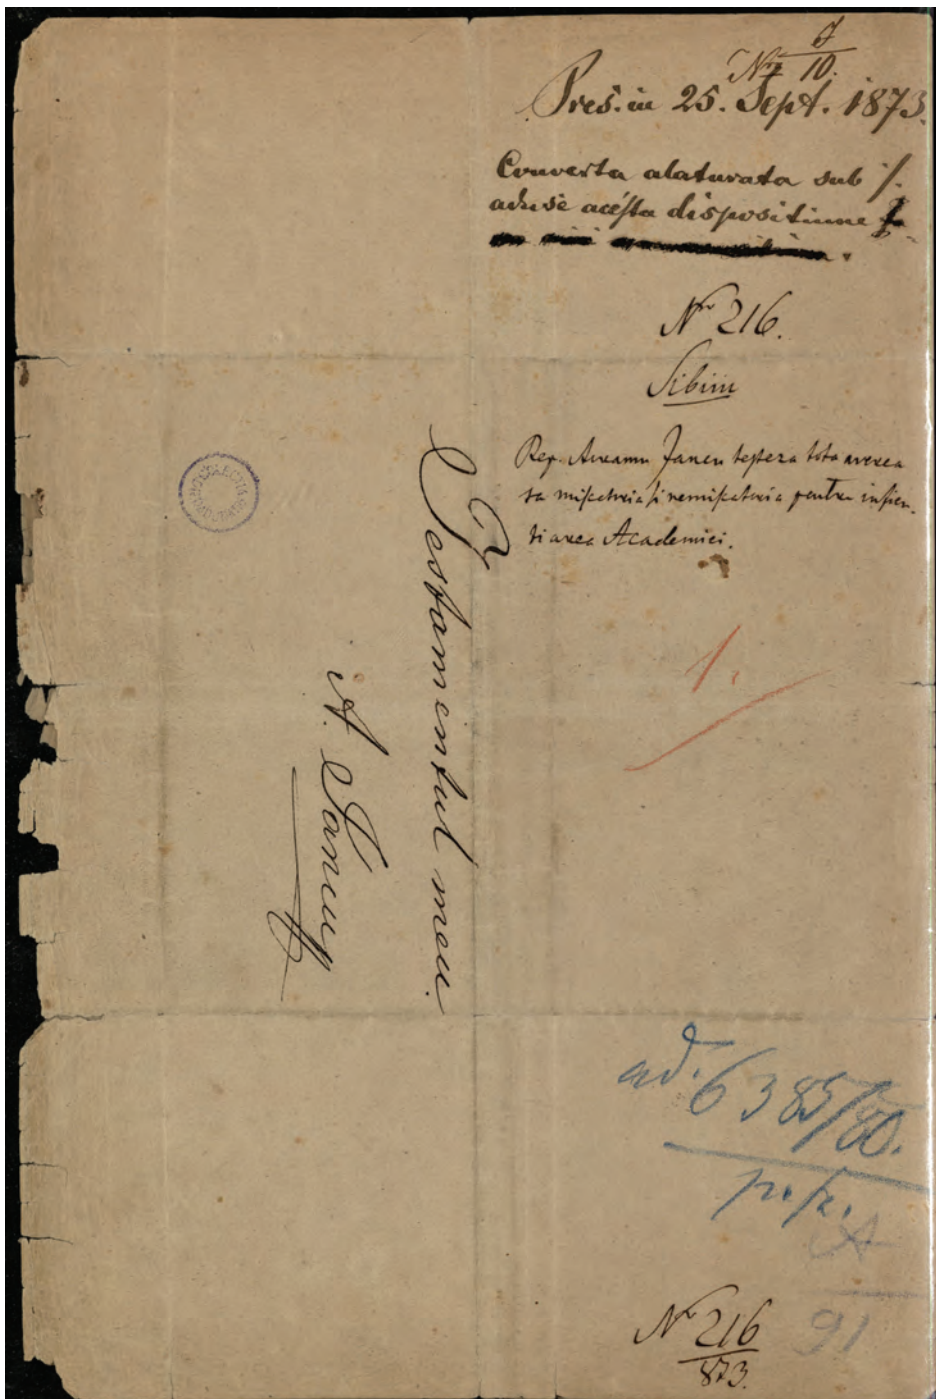 J
Nr 10.
Pres. in 25. Sept. 1873.
Couverta alaturata sub /.
aduse acésta dispositiune
Nr 216.
Sibiiu
Rep. Avramu Jancu testeza tota averea
sa miscatoria si nemiscatoria pentru infien-
tiarea Academiei.
Testamentul meu.
A. Iancu
1.
ad. 6385/80.
p. p.
A
91
Nr 216
873.